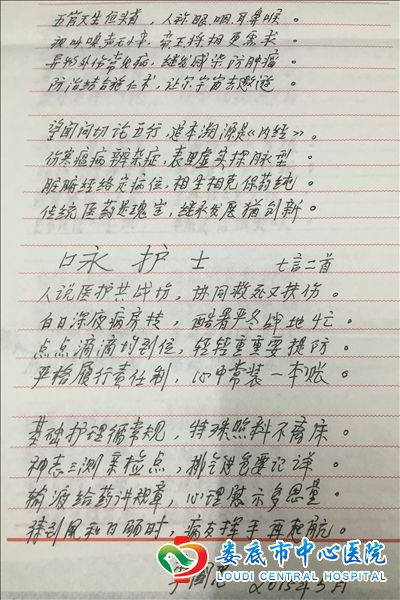 五官天生位头首，人称眼咽耳鼻喉。
防治结合施仁术，让尔宇宙去遨游。
望闻问切论五行，追本溯源是《内经》。
伤寒瘟病辨杂症，表里虚实探脉型。
脏腑经络定病位，相生相克保药纯。
传统医药是瑰宝，继承发展犹创新。
咏护士 七言二首
人说医护共战场，协同救死又扶伤。
白日深夜病房转，酷暑严冬战地忙。
点点滴滴均到位，轻轻重重要提防。
严格履行责任制，心中常装一本账。
基础护理循常规，特殊照料不离床。
神志三测采检点，排泄进色要记详。
输液给药讲规章，心理展示多思量。
待到风和日丽时，病友挥手再起航。
2015年5月
娄底市中心医院
LOUDI CENTRAL HOSPITAL